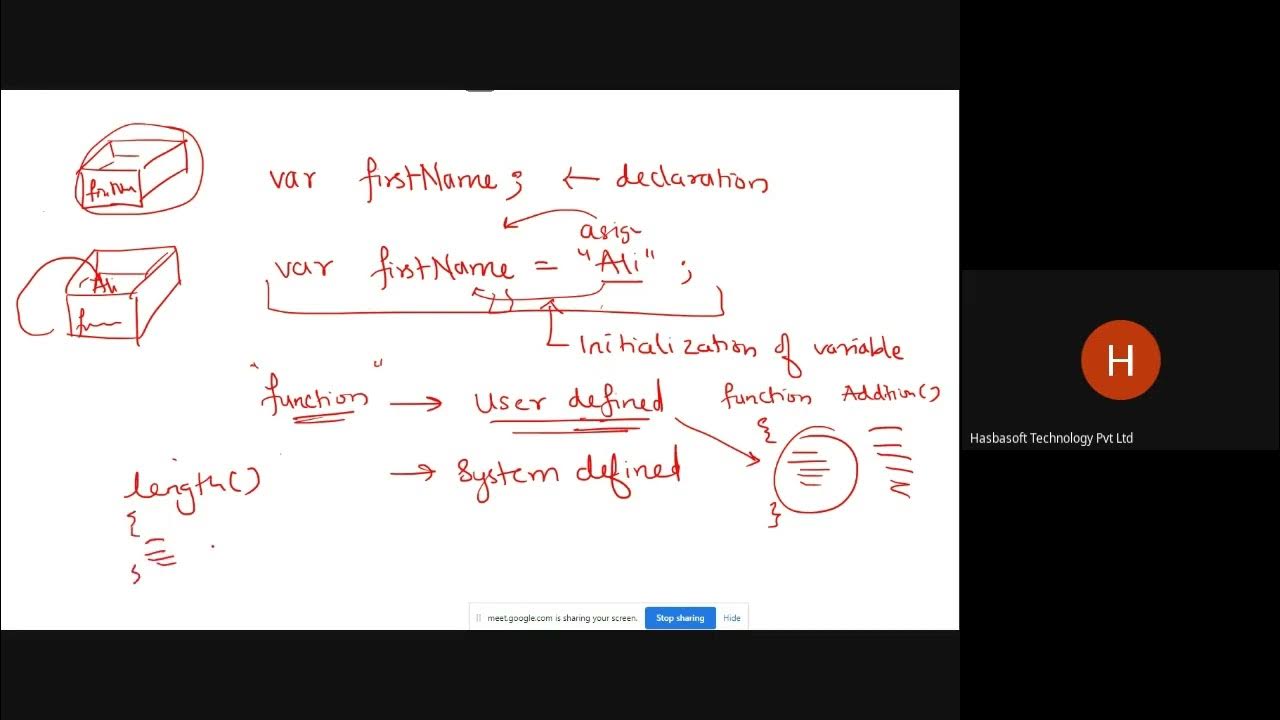 var firstName ; ← declaration
asign
var firstName = "Ali" ;
Ali
Initialization of variable
"function" → User defined
function Addition()
{
}
→ System defined
length()
{
}
H
Hasbasoft Technology Pvt Ltd
meet.google.com is sharing your screen. Stop sharing Hide